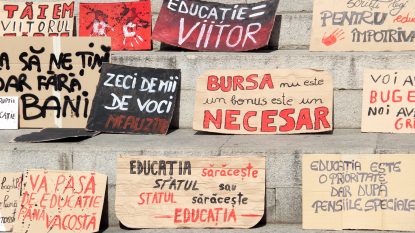 TĂIEM
VIITORUL
EDUCAȚIE =
VIITOR
PENTRU
ÎMPOTRIVA
SĂ NE ȚIN
DAR FĂRĂ
BANI
ZECI DE MII
DE VOCI
NEAUZITE
BURSA nu este
un bonus este un
NECESAR
VOI A
BUGE
NOI AV
GR
VĂ PASĂ
DE EDUCAȚIE
PÂNĂ
VĂ COSTĂ
EDUCAȚIA sărăcește
STATUL sau
STATUL sărăcește
EDUCAȚIA
EDUCAȚIA ESTE
O PRIORITATE
DAR DUPĂ
PENSIILE SPECIALE